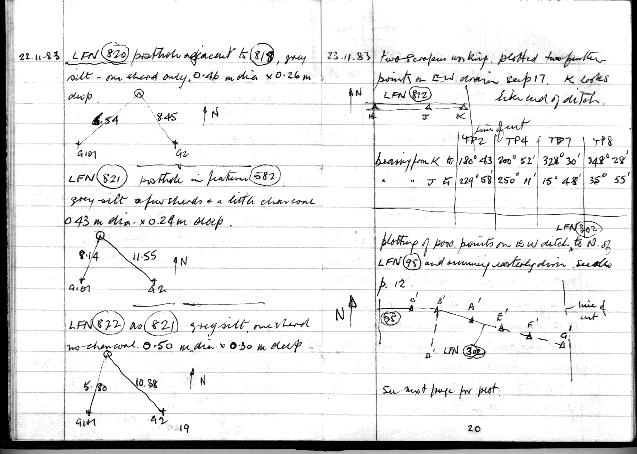 22.11.83 LFN 820 posthole adjacent to 818, grey
silt - one sherd only, 0.46 m dia x 0.26 m
deep.
6.54 8.45 N
G101 G2
LFN 821 posthole in feature 582
grey silt a few sherds & a little charcoal
0.43 m dia. x 0.24 m deep.
8.14 11.55 N
G101 G2
LFN 822 as 821 grey silt, one sherd
no charcoal. 0.50 m dia x 0.30 m deep.
5.80 10.38 N
G101 G2
19
23.11.83 two scrapers working. plotted two further
points on E W drain see p 17. K looks
like end of ditch.
N LFN 812
J K
line of cut
TP2 TP4 TP7 TP8
bearing from K to 180° 43 200° 52' 328° 30' 348° 28'
" " J to 229° 58' 250° 11' 15° 48' 35° 55'
LFN 302
plotting of points on E W ditch, to N. of
LFN 95 and running easterly
p. 12
N 55 B' A' E' F' G' line of cut
D' LFN 302
See next page for plot.
20